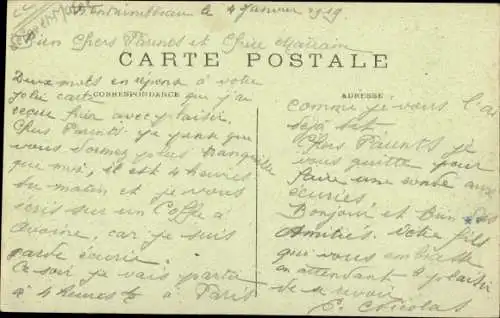 Fontainebleau le 4 Janvier 1919
Bien Chers Parents et Chère Marraine
CARTE POSTALE
CORRESPONDANCE
ADRESSE
Deux mots en répons à votre
jolie carte que j'ai
reçue hier avec plaisir.
Chers Parents je pense que
vous dormez plus tranquille
que moi, il est 4 heures
du matin et je vous
écris sur un Coffe à
Avoine, car je suis
garde écurie.
Ce soir je vais partir
à 4 heures à Paris
comme je vous l'ai
déjà dit
Chers Parents je
vous quitte pour
faire une ronde aux
écuries
Bonjour et Bien des
Amitiés. Votre fils
qui vous embrasse
en attendant le plaisir
de se revoir
E. Nicolas